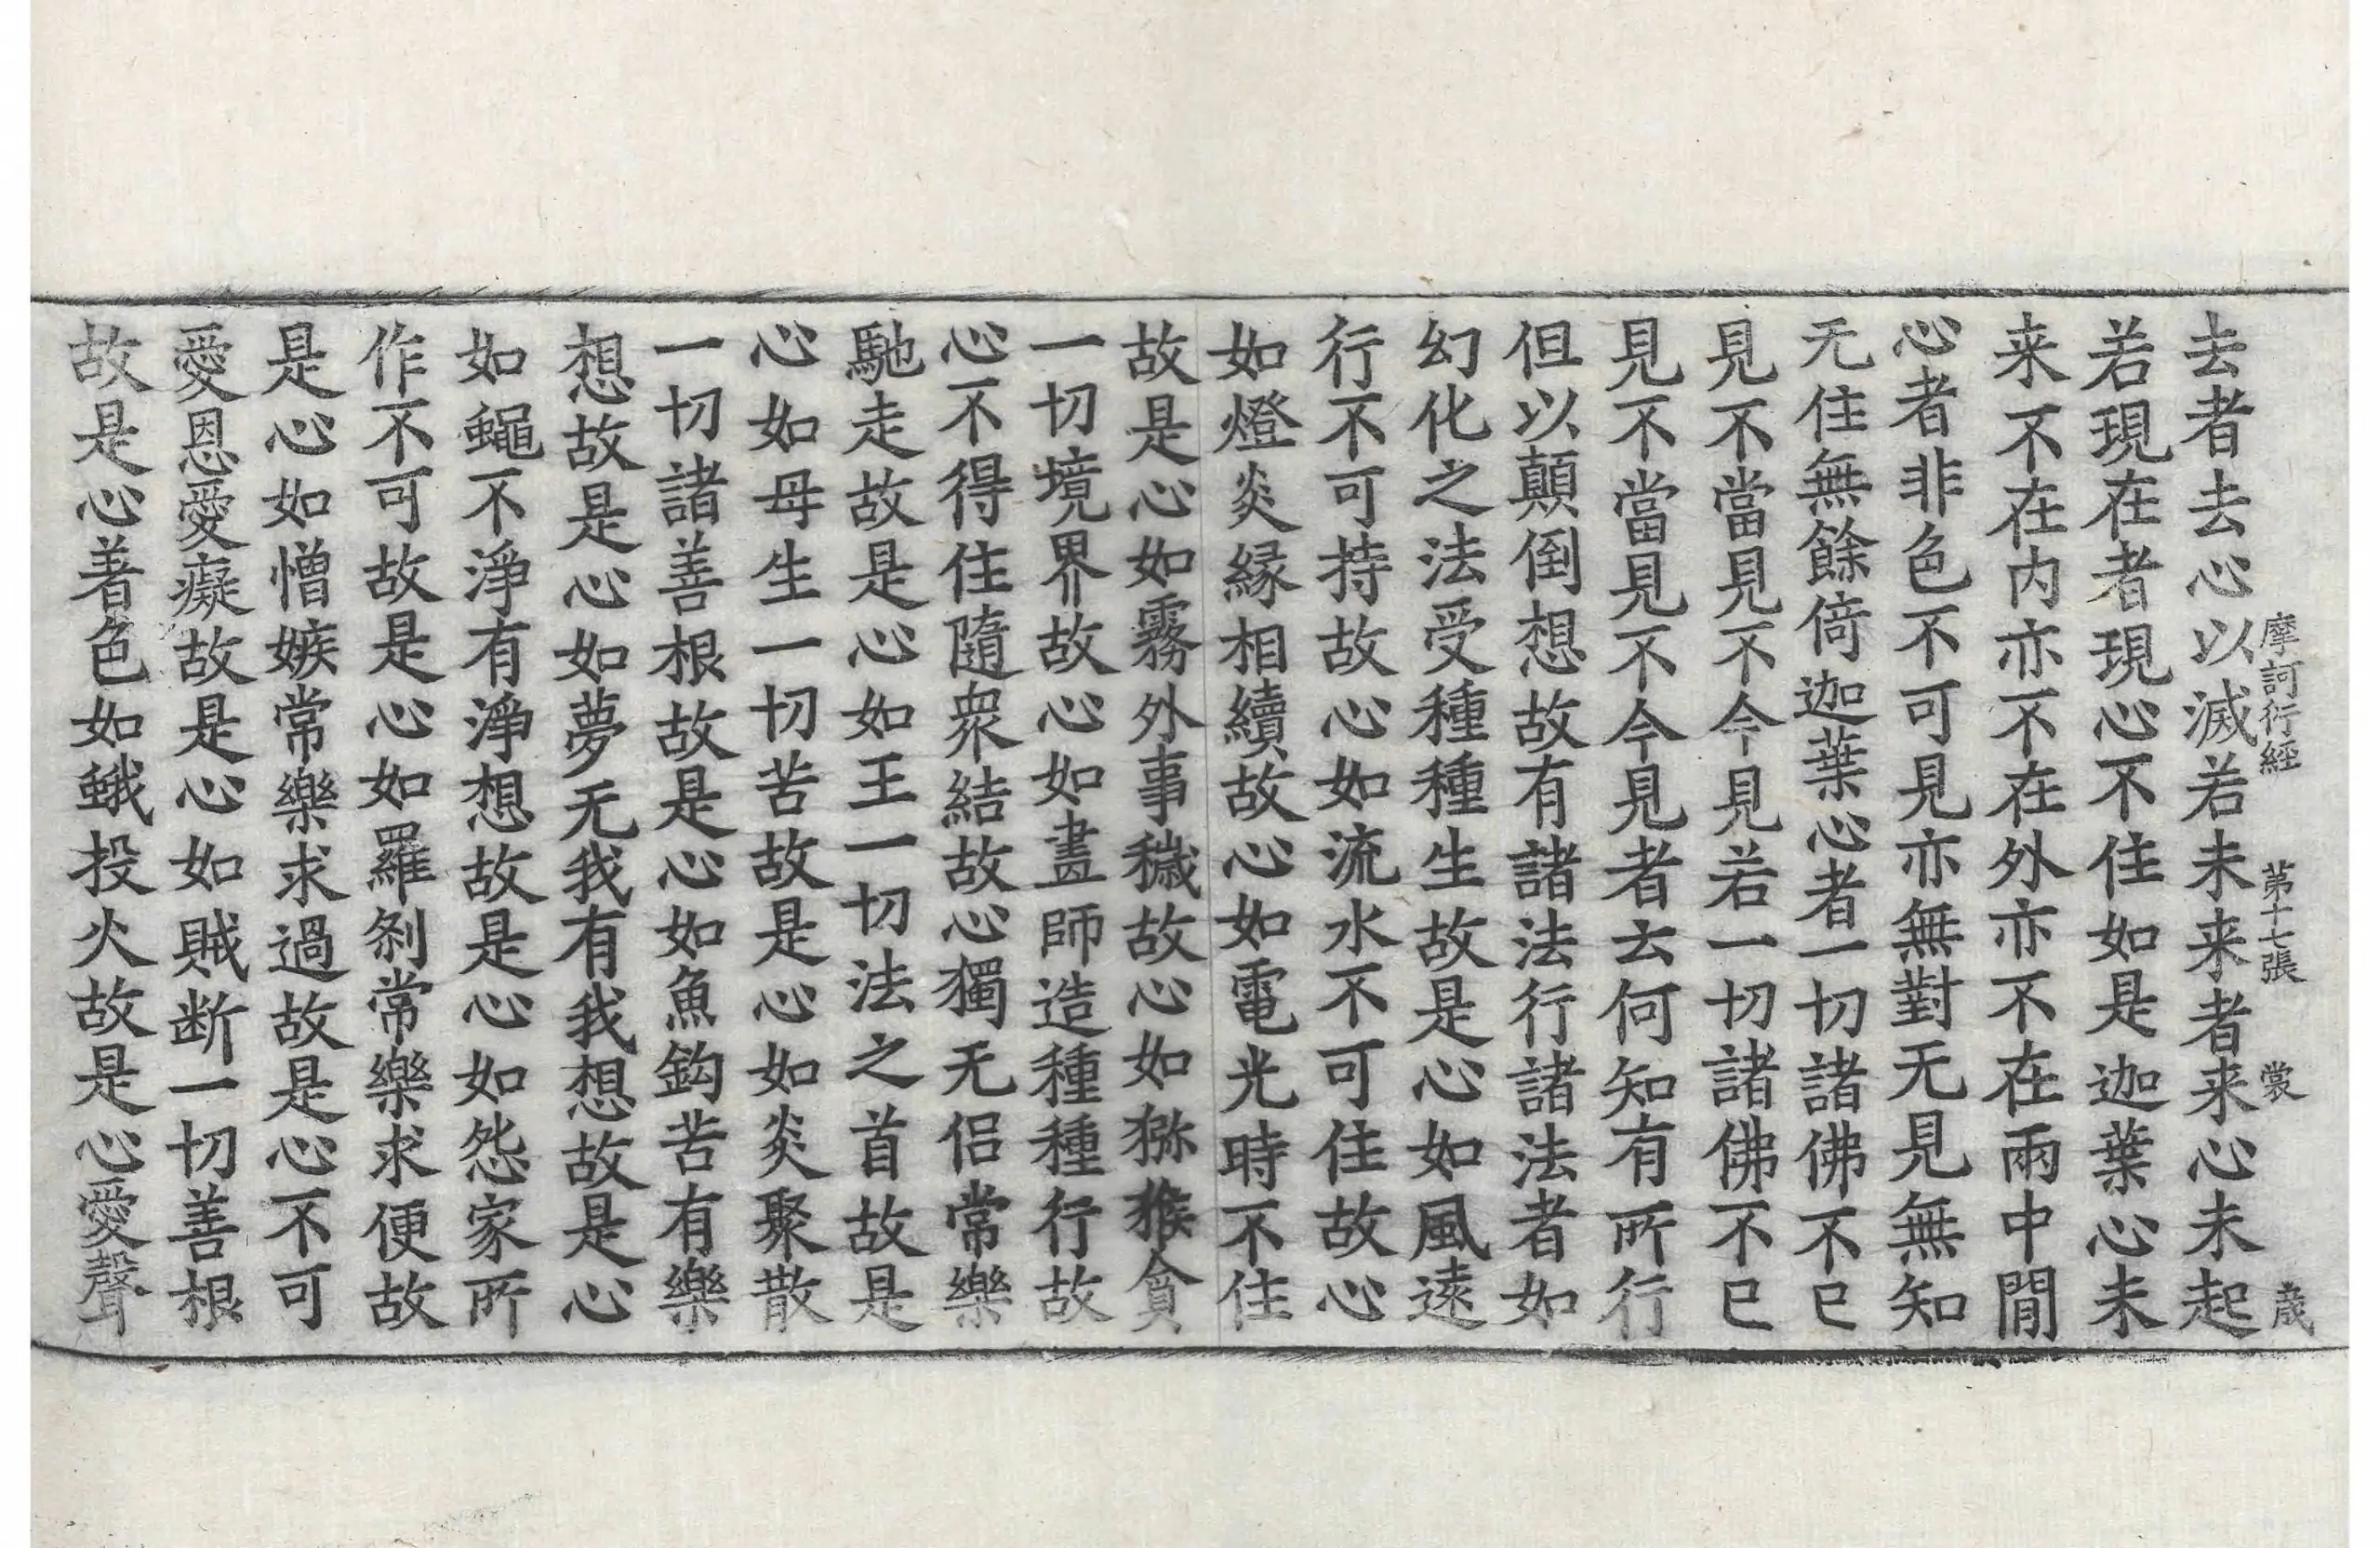 摩訶衍經 第十七張 裳 歳
去者去心以滅若未来者来心未起
若現在者現心不住如是迦葉心未
来不在内亦不在外亦不在兩中閒
心者非色不可見亦無對无見無知
无住無餘倚迦葉心者一切諸佛不已
見不當見不今見若一切諸佛不已
見不當見不今見者云何知有所行
但以顛倒想故有諸法行諸法者如
幻化之法受種種生故是心如風遠
行不可持故心如流水不可住故心
如燈炎緣相續故心如電光時不住
故是心如霧外事穢故心如猕猴貪
一切境界故心如畫師造種種行故
心不得住隨衆結故心獨无侣常樂
馳走故是心如王一切法之首故是
心如母生一切苦故是心如炎聚散
一切諸善根故是心如魚鈎苦有樂
想故是心如夢无我有我想故是心
如蠅不淨有淨想故是心如怨家所
作不可故是心如羅剎常樂求便故
是心如憎嫉常樂求過故是心不可
愛恩愛癡故是心如賊断一切善根
故是心著色如蛾投火故是心愛聲